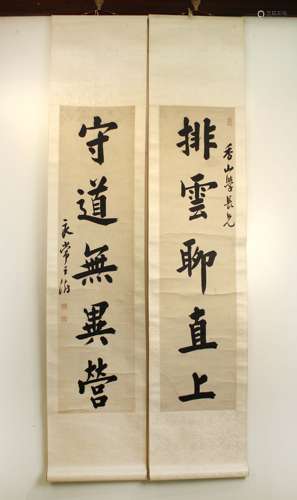 香山學長兄
排雲聊直上
守道無異營
常